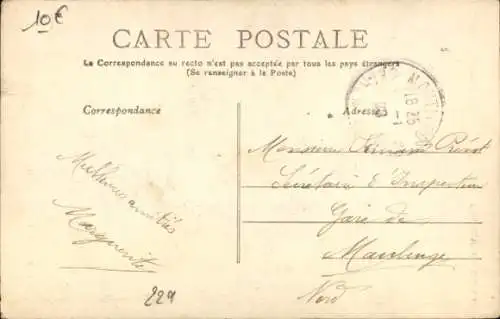 10€
CARTE POSTALE
La Correspondance au recto n'est pas acceptée par tous les pays étrangers
(Se renseigner à la Poste)
Correspondance
Adresse
NORD
18 25
Meilleures amitiés
Marguerite
Monsieur Fernand Prévot
Secrétaire d'Inspection
Gare de
Maubeuge
Nord
229